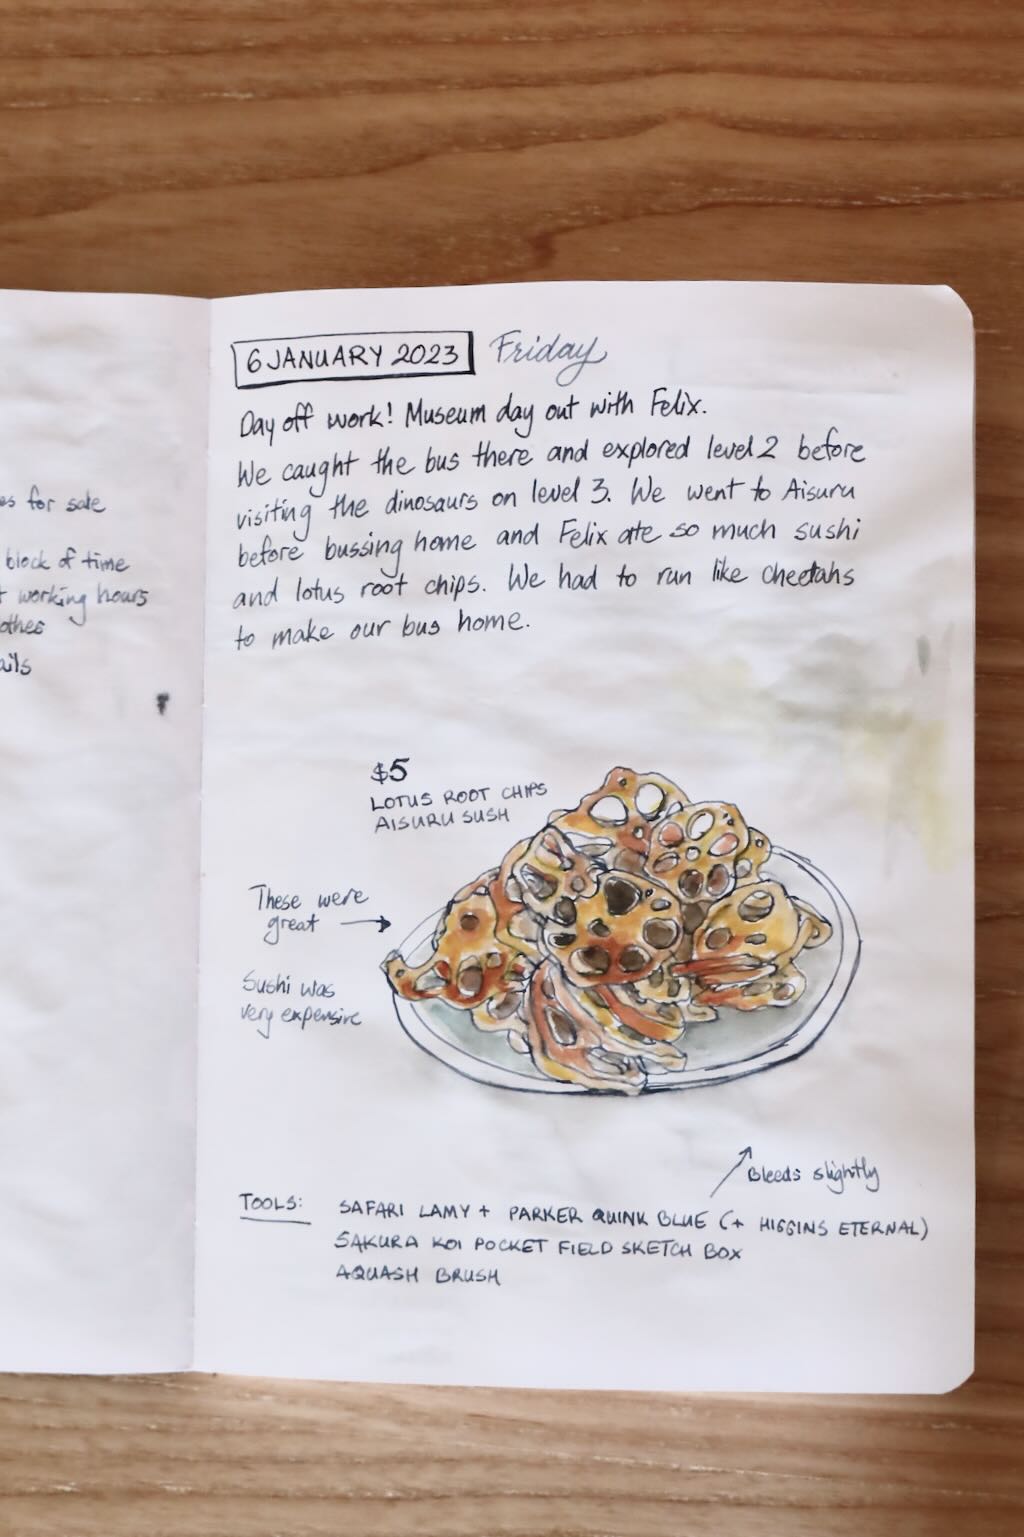 es for sale
block of time
working hours
othes
ails
6 JANUARY 2023 Friday
Day off work! Museum day out with Felix.
We caught the bus there and explored level 2 before
visiting the dinosaurs on level 3. We went to Aisuru
before bussing home and Felix ate so much sushi
and lotus root chips. We had to run like cheetahs
to make our bus home.
$5
LOTUS ROOT CHIPS
AISURU SUSH
These were
great →
Sushi was
very expensive
Bleeds slightly
TOOLS: SAFARI LAMY + PARKER QUINK BLUE (+ HIGGINS ETERNAL)
SAKURA KOI POCKET FIELD SKETCH BOX
AQUASH BRUSH